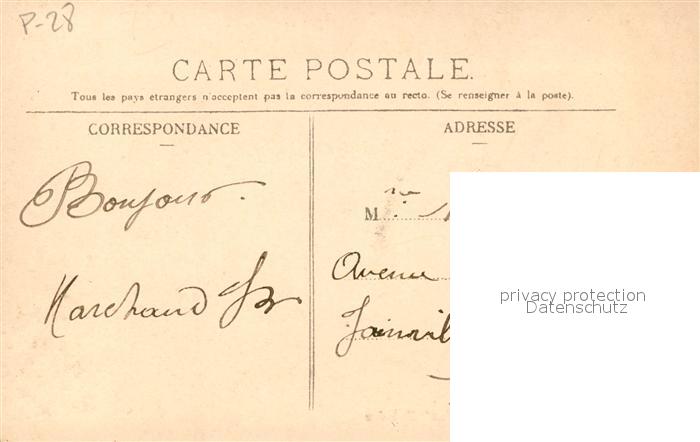 P-28
CARTE POSTALE.
Tous les pays étrangers n'acceptent pas la correspondance au recto. (Se renseigner à la poste).
CORRESPONDANCE
ADRESSE
Bonjour.
Marchand
M
Avenue
privacy protection
Datenschutz